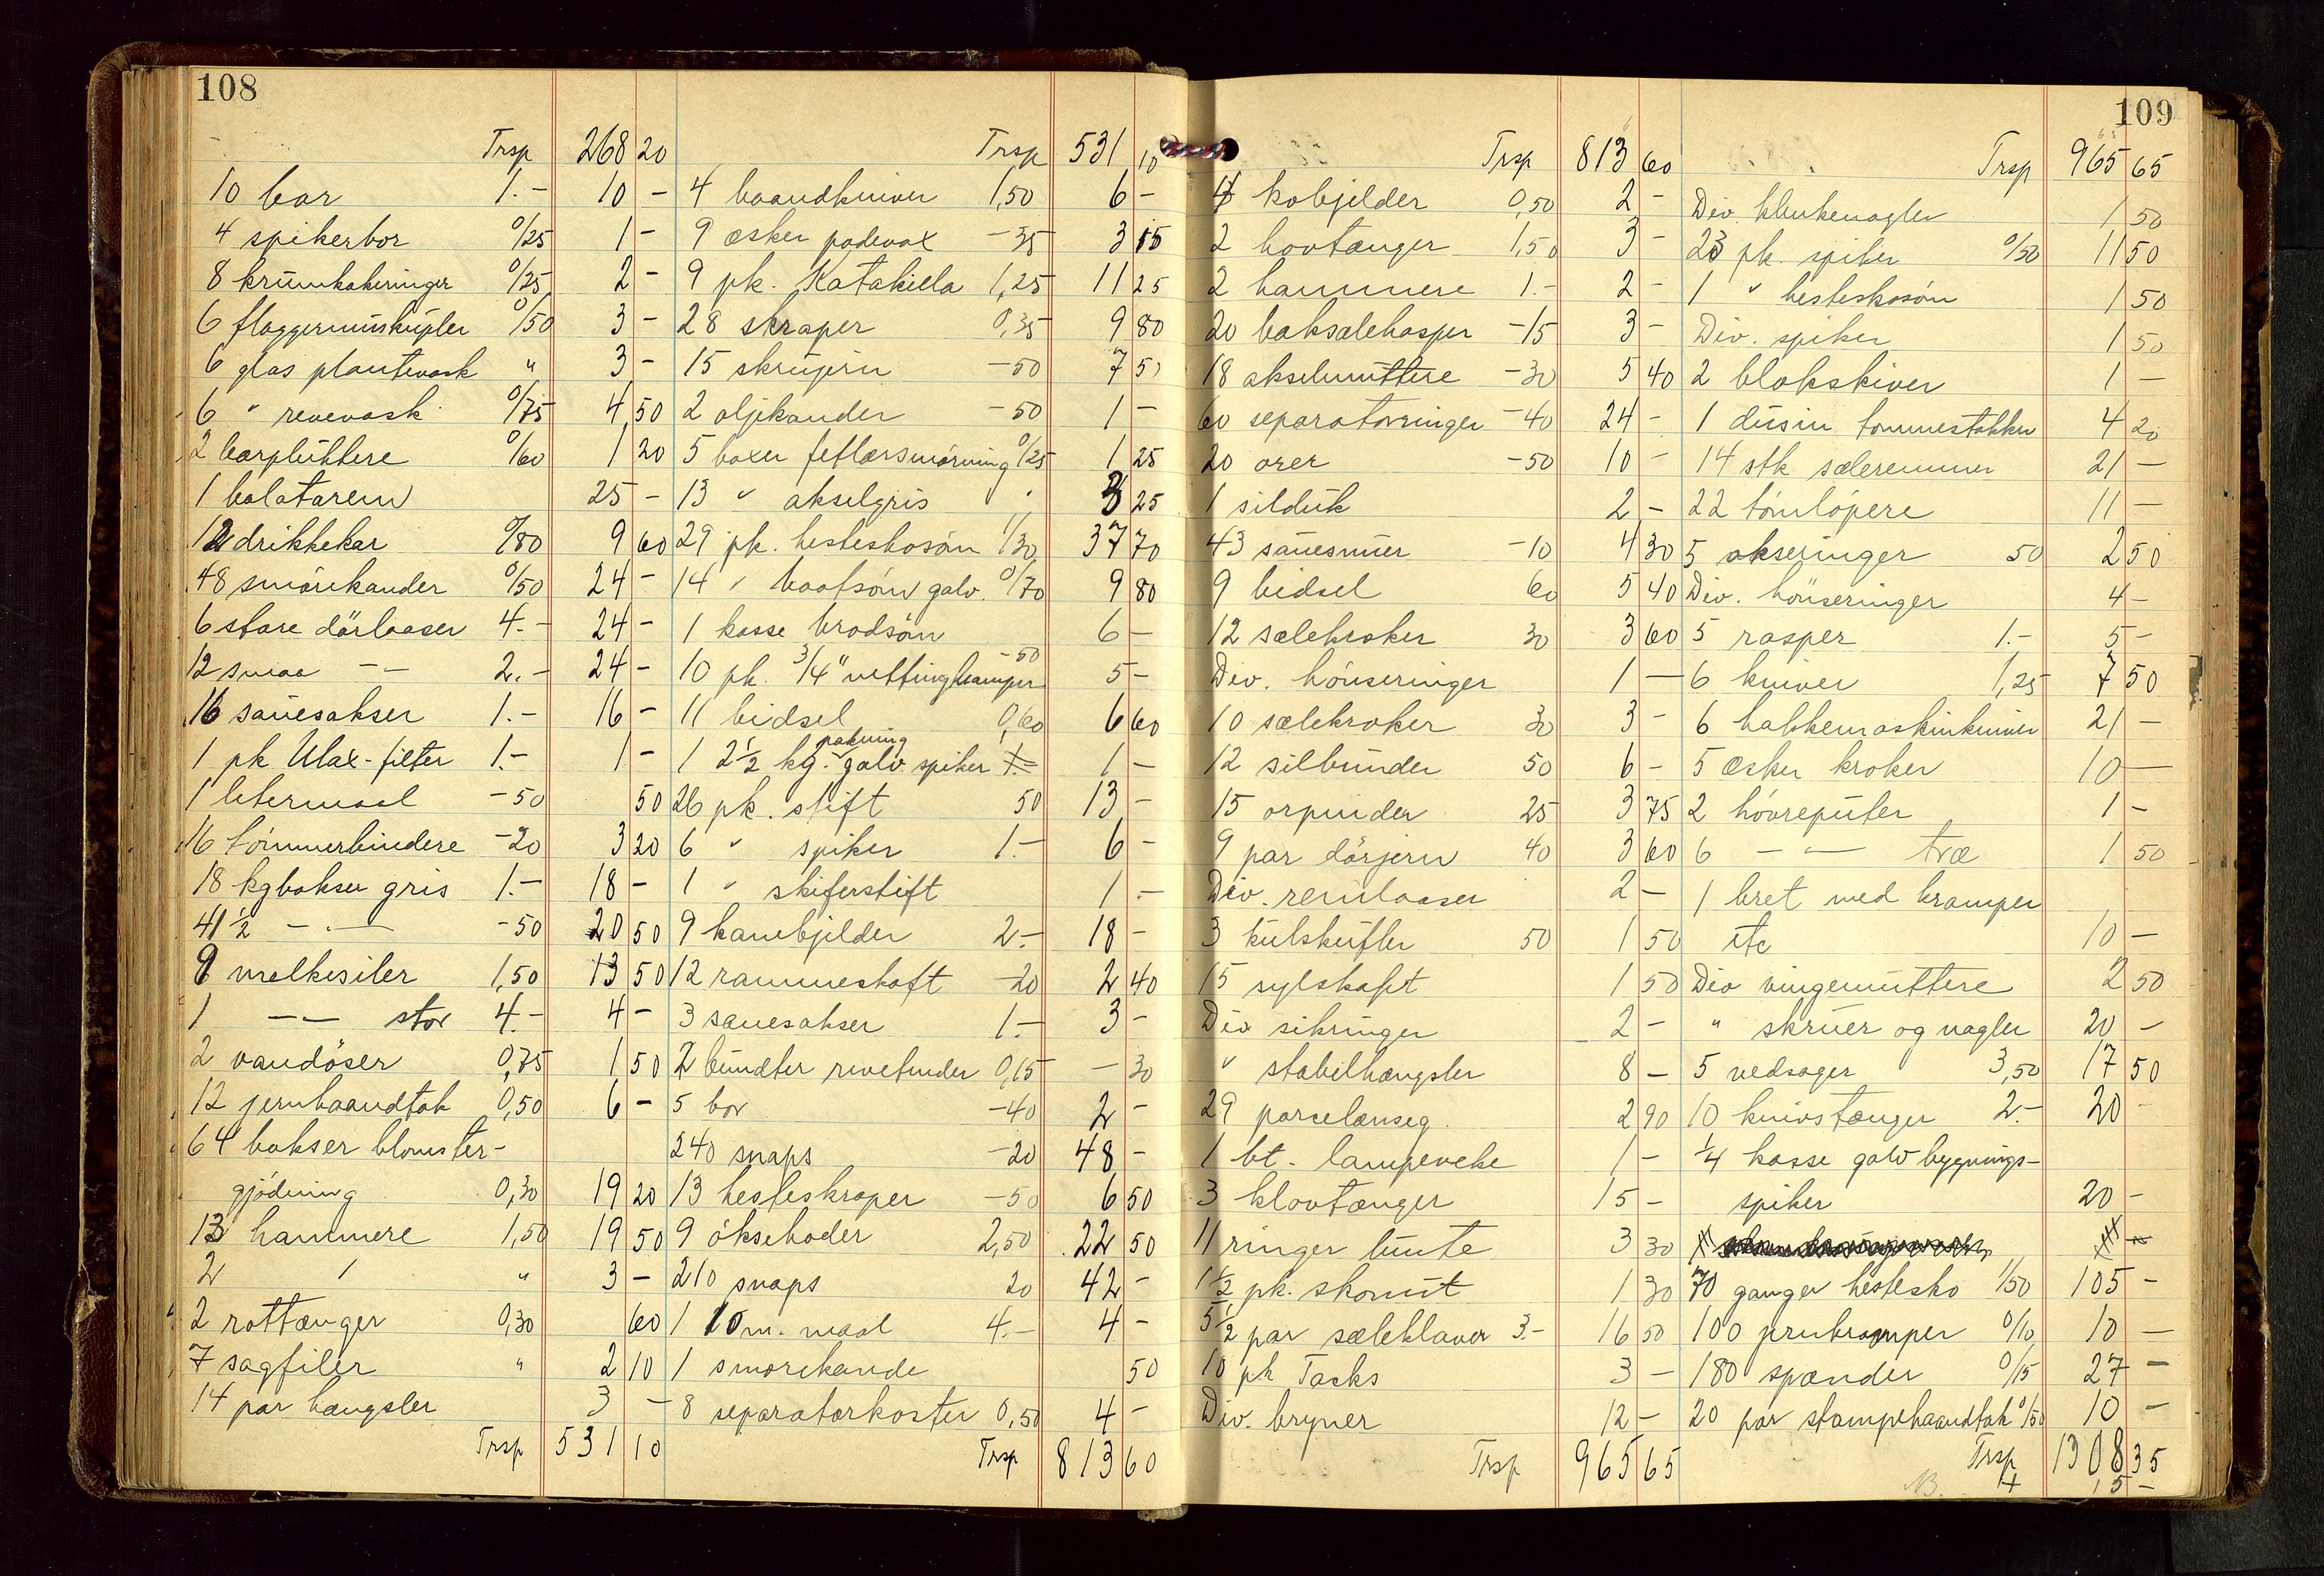 108
Trsp 268 20
10 bor 1.- 10 -
4 spikerbor 0/25 1 -
8 krumkakeringer 0/25 2 -
6 flaggermuskupler 0/50 3 -
6 glas plantevask " 3 -
6 " revevask 0/75 4,50
2 bærpluttere 0/60 1 20
1 balatarem 25 -
12 drikkekar 0/80 9 60
48 smörekander 0/50 24 -
6 store dörlaaser 4.- 24 -
12 smaa - - 2.- 24 -
16 sauesakser 1.- 16 -
1 pk Ulax-filter 1.- 1 -
1 litermaal -50 50
16 tömmerbindere -20 3 20
18 kgbokser gris 1.- 18 -
41 ½ - . - -50 20 50
9 melkesiler 1,50 13 50
1 - - stor 4.- 4 -
2 vandöser 0,75 1 50
12 jernhaandtak 0,50 6 -
64 bokser blomster-
gjödning 0,30 19 20
13 hammere 1,50 19 50
2 1 " 3 -
2 rottænger 0,30 60
7 sagfiler " 2 10
14 par hængsler 3 -
Trsp 531 10
Trsp 531 10
4 baandkniver 1,50 6 -
9 æsker podevox -35 3 15
9 pk. Katakilla 1,25 11 25
28 skraper 0,35 9 80
15 skrujern -50 7 50
2 oljekander -50 1 -
5 boxer fetlærsmörning 0/25 1 25
13 " akselgris " 3 25
29 pk. hesteskosöm 1/30 37 70
14 " baatsöm galv. 0/70 9 80
1 kasse brodsöm 6 -
10 pk. 3/4" nettingkramper -50 5 -
11 bidsel 0,60 6 60
1 2½ kg. pakning galv. spiker 1.- 1 -
26 pk. stift 50 13 -
6 " spiker 1.- 6 -
1 " skiferstift 1 .-
9 kanebjelder 2.- 18 -
12 rammeskaft -20 2 40
3 sauesakser 1.- 3 -
2 bundter rivetinder 0,15 - 30
5 bor -40 2 -
240 snaps -20 48 -
13 hesteskraper -50 6 50
9 öksehoder 2,50 22 50
210 snaps 20 42 -
1 10 m. maal 4.- 4 -
1 smorekande 50
8 separatorkoster 0,50 4 -
Trsp 813 60
109
Trsp 813 60
4 kobjelder 0,50 2 -
2 hovtænger 1,50 3 -
2 hammere 1.- 2 -
20 baksælehasper -15 3 -
18 akselmuttere -30 5 40
60 separatorringer -40 24 -
20 orer -50 10 -
1 silduk 2 -
43 sauesnuer -10 4 30
9 bidsel 60 5 40
12 sælekroker 30 3 60
Div. hönseringer 1 -
10 sælekroker 30 3 -
12 silbunder 50 6 -
15 orpinder 25 3 75
9 par dörjern 40 3 60
Div. remlaaser 2 -
3 kulskufler 50 1 50
15 sylskaft 1 50
Div sikringer 2 -
" stabelhængsler 8 -
29 porcelænseg. 2 90
1 bt. lampeveke 1 -
3 klovtænger 15 -
11 ringer lunte 3 30
1½ pk. skonit 1 30
5½ par sæleklaver 3.- 16 50
10 pk Tacks 3 -
Div. bryner 12 -
Trsp 965 65
Trsp 965 65
Div. klinkenagler 1 50
23 pk. spiker 0/50 11 50
1 " hesteskosöm 1 50
Div. spiker 1 50
2 blokskiver 1 -
1 dusin tommestokker 4 20
14 stk sæleremmer 21 -
22 tömlöpere 11 -
5 akseringer 50 2 50
Div. hönseringer 4 -
5 rasper 1.- 5 -
6 kniver 1,25 7 50
6 hakkemaskinkniver 21 -
5 æsker kroker 10 -
2 hövreputer 1 -
6 - - træ 1 50
1 bret med kramper
etc 10 -
Div vingemuttere 2 50
" skruer og nagler 20 -
5 vedsager 3,50 17 50
10 knivstænger 2.- 20 -
¼ kasse galv bygnings-
spiker 20 -
70 ganger hestesko 1/50 105 -
100 jernkramper 0/10 10 -
180 spænder 0/15 27 -
20 par stampehaandtak 0/50 10 -
Trsp 1308 35